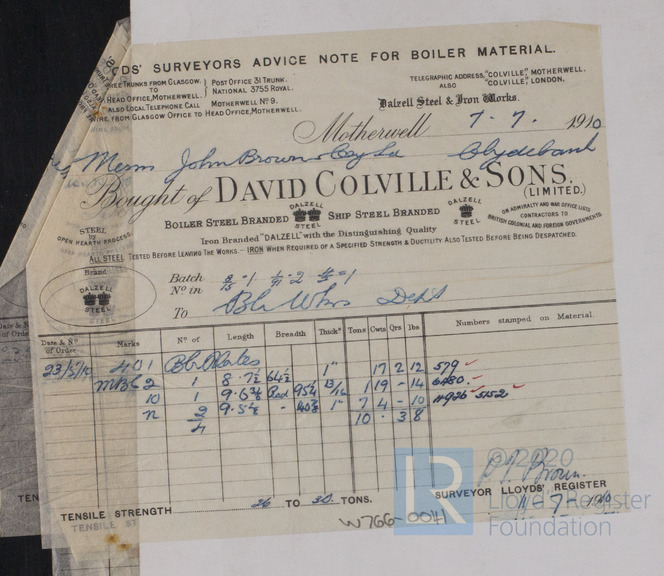 DS' SURVEYORS ADVICE NOTE FOR BOILER MATERIAL.
REE TRUNKS FROM GLASGOW. } POST OFFICE 31 TRUNK.
TO } NATIONAL 3755 ROYAL.
HEAD OFFICE, MOTHERWELL.
ALSO LOCAL TELEPHONE CALL MOTHERWELL Nº 9.
WIRE, FROM GLASGOW OFFICE TO HEAD OFFICE, MOTHERWELL.
TELEGRAPHIC ADDRESS, "COLVILLE", MOTHERWELL.
ALSO "COLVILLE", LONDON.
Dalzell Steel & Iron Works.
Motherwell 7.7. 1910
Messrs John Brown & Coy Ld Clydebank
Bought of DAVID COLVILLE & SONS.
(LIMITED.)
BOILER STEEL BRANDED DALZELL STEEL SHIP STEEL BRANDED DALZELL STEEL
ON ADMIRALTY AND WAR OFFICE LISTS
CONTRACTORS TO
BRITISH COLONIAL AND FOREIGN GOVERNMENTS
STEEL
by
OPEN HEARTH PROCESS.
Iron Branded "DALZELL" with the Distinguishing Quality
ALL STEEL TESTED BEFORE LEAVING THE WORKS.—IRON WHEN REQUIRED OF A SPECIFIED STRENGTH & DUCTILITY ALSO TESTED BEFORE BEING DESPATCHED.
Brand
DALZELL
STEEL
Batch
Nº in
To Blr Wks Dept
Date & Nº of Order Marks Nº of Length Breadth Thick" Tons Cwts Qrs lbs Numbers stamped on Material.
23/5/10 401 Blr Plates 1" 17 2 12 579
2 1 8.7½ 64½ 13/16 1 19 - 14 6480.
10 1 9.6¾ Rad 95¼ 1" 7 4 - 10 5152
n 2 9.5½ - 40⅜ 10 . 3 8
4
TENSILE STRENGTH 26 TO 30 TONS.
SURVEYOR LLOYDS' REGISTER
11.7.1910
W766-0041
©2020
LR
Lloyd's Register
Foundation
TEN
TENSILE ST